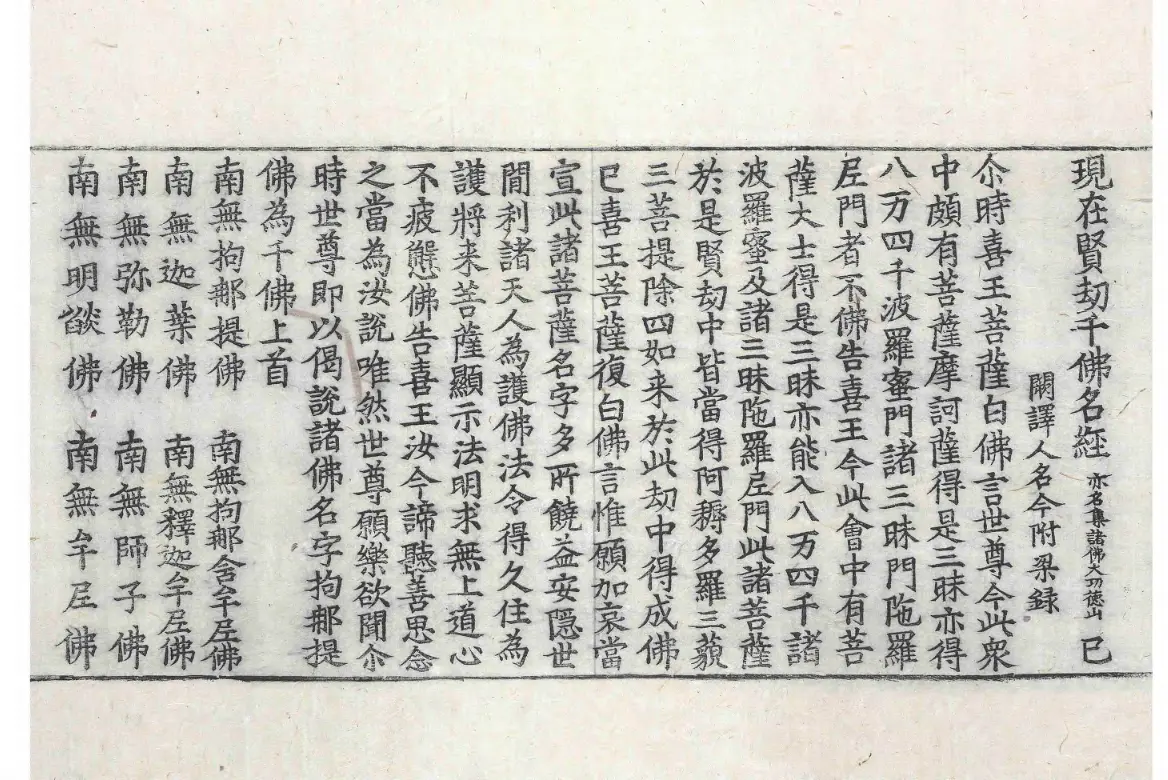 現在賢劫千佛名經 亦名集諸佛大功徳山 巳
闕譯人名今附梁録
尒時喜王菩薩白佛言世尊今此衆
中頗有菩薩摩訶薩得是三昧亦得
八万四千波羅蜜門諸三昧門陁羅
𡰱門者不佛告喜王今此會中有菩
薩大士得是三昧亦能入八万四千諸
波羅蜜及諸三昧陁羅𡰱門此諸菩薩
於是賢劫中皆當得阿耨多羅三藐
三菩提除四如来於此劫中得成佛
巳喜王菩薩復白佛言惟願加哀當
宣此諸菩薩名字多所饒益安隠世
間利諸天人為護佛法令得久住為
護將来菩薩顯示法明求無上道心
不疲懈佛告喜王汝今諦聽善思念
之當為汝說唯然世尊願樂欲聞尒
時世尊即以偈說諸佛名字拘那提
佛為千佛上首
南無拘那提佛 南無拘那含牟𡰱佛
南無迦葉佛 南無釋迦牟𡰱佛
南無弥勒佛 南無師子佛
南無明燄佛 南無牟𡰱佛